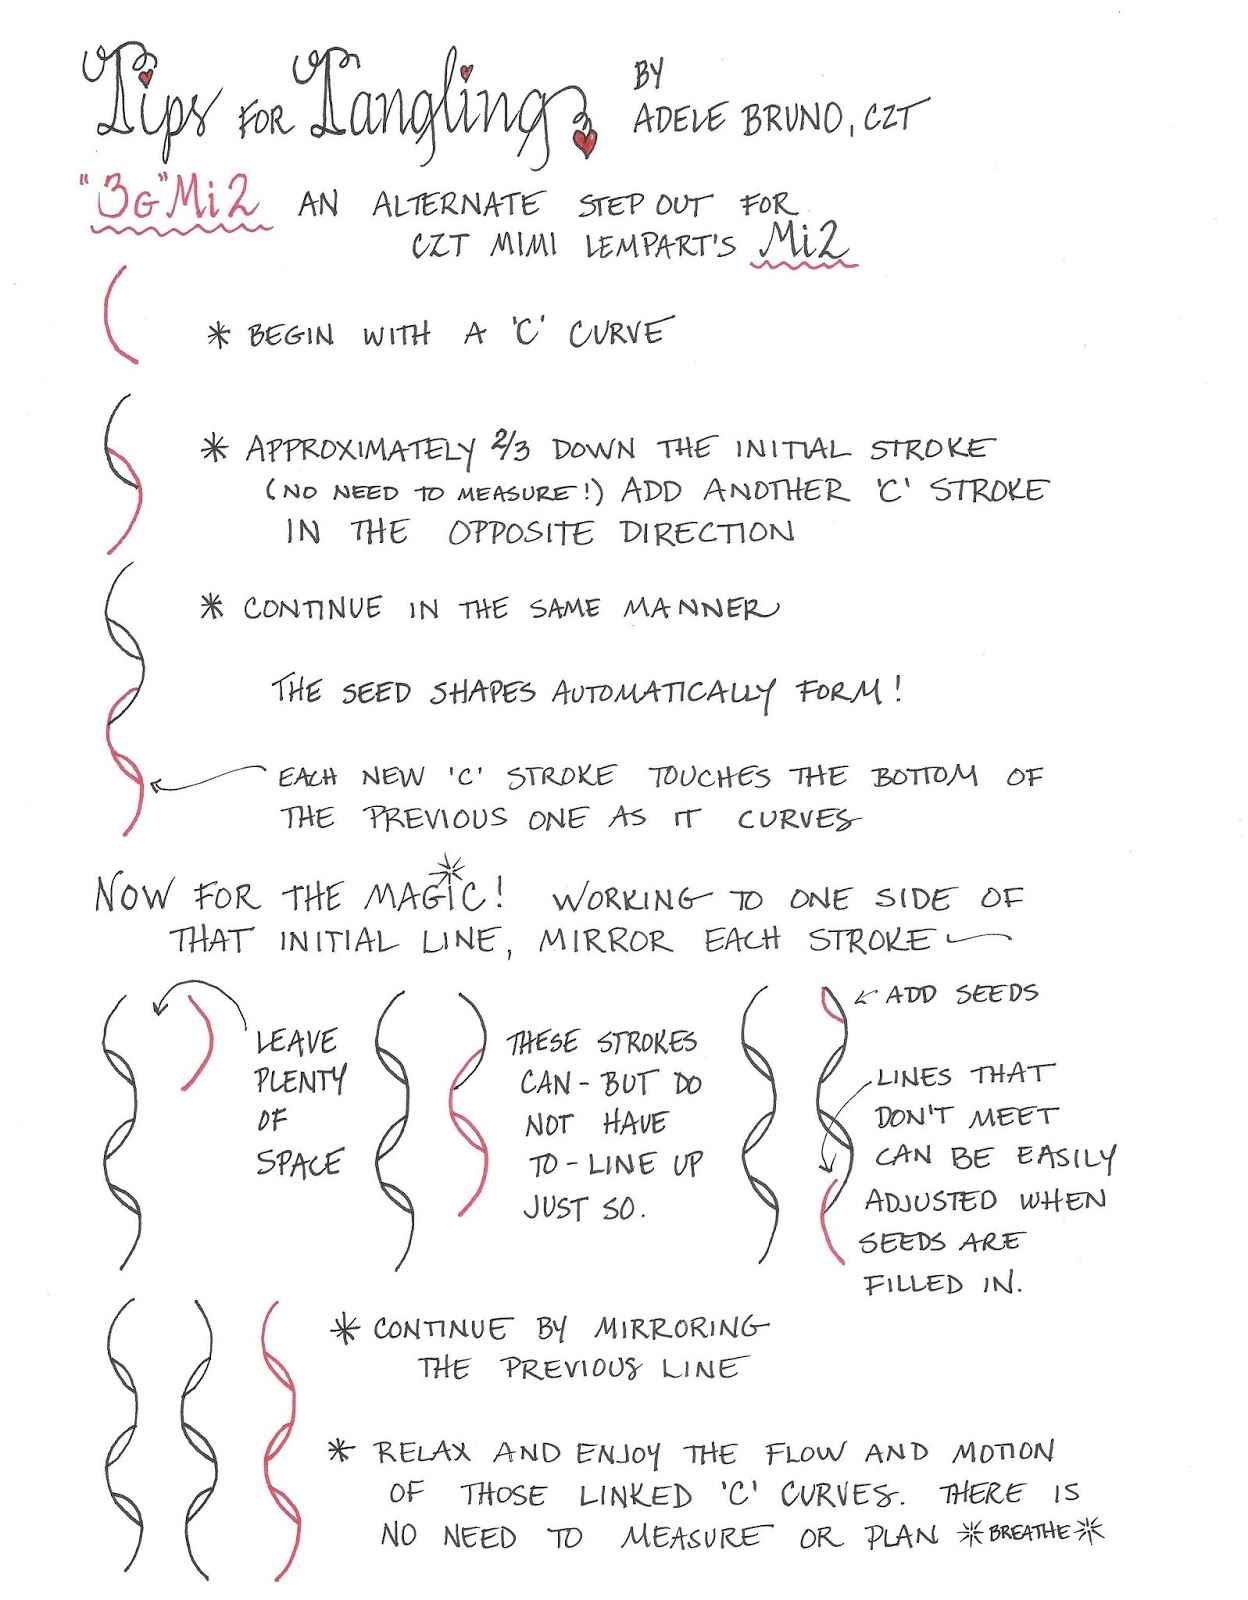 Tips FOR Tangling BY
ADELE BRUNO, CZT
"3G" Mi2 AN ALTERNATE STEP OUT FOR
CZT MIMI LEMPART'S Mi2
* BEGIN WITH A 'C' CURVE
* APPROXIMATELY 2/3 DOWN THE INITIAL STROKE
(NO NEED TO MEASURE!) ADD ANOTHER 'C' STROKE
IN THE OPPOSITE DIRECTION
* CONTINUE IN THE SAME MANNER
THE SEED SHAPES AUTOMATICALLY FORM!
EACH NEW 'C' STROKE TOUCHES THE BOTTOM OF
THE PREVIOUS ONE AS IT CURVES
NOW FOR THE MAGIC! WORKING TO ONE SIDE OF
THAT INITIAL LINE, MIRROR EACH STROKE
LEAVE
PLENTY
OF
SPACE
THESE STROKES
CAN - BUT DO
NOT HAVE
TO - LINE UP
JUST SO.
ADD SEEDS
LINES THAT
DON'T MEET
CAN BE EASILY
ADJUSTED WHEN
SEEDS ARE
FILLED IN.
* CONTINUE BY MIRRORING
THE PREVIOUS LINE
* RELAX AND ENJOY THE FLOW AND MOTION
OF THOSE LINKED 'C' CURVES. THERE IS
NO NEED TO MEASURE OR PLAN *BREATHE*